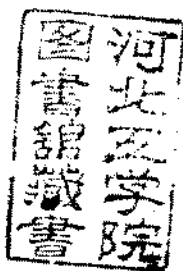 河北工学院
图書舘藏書